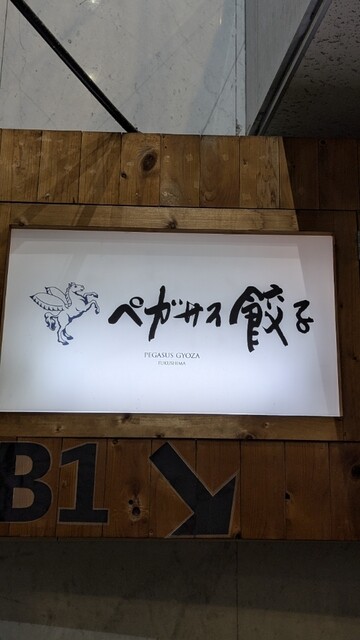 ペガサス餃子
PEGASUS GYOZA
FUKUSHIMA
B1